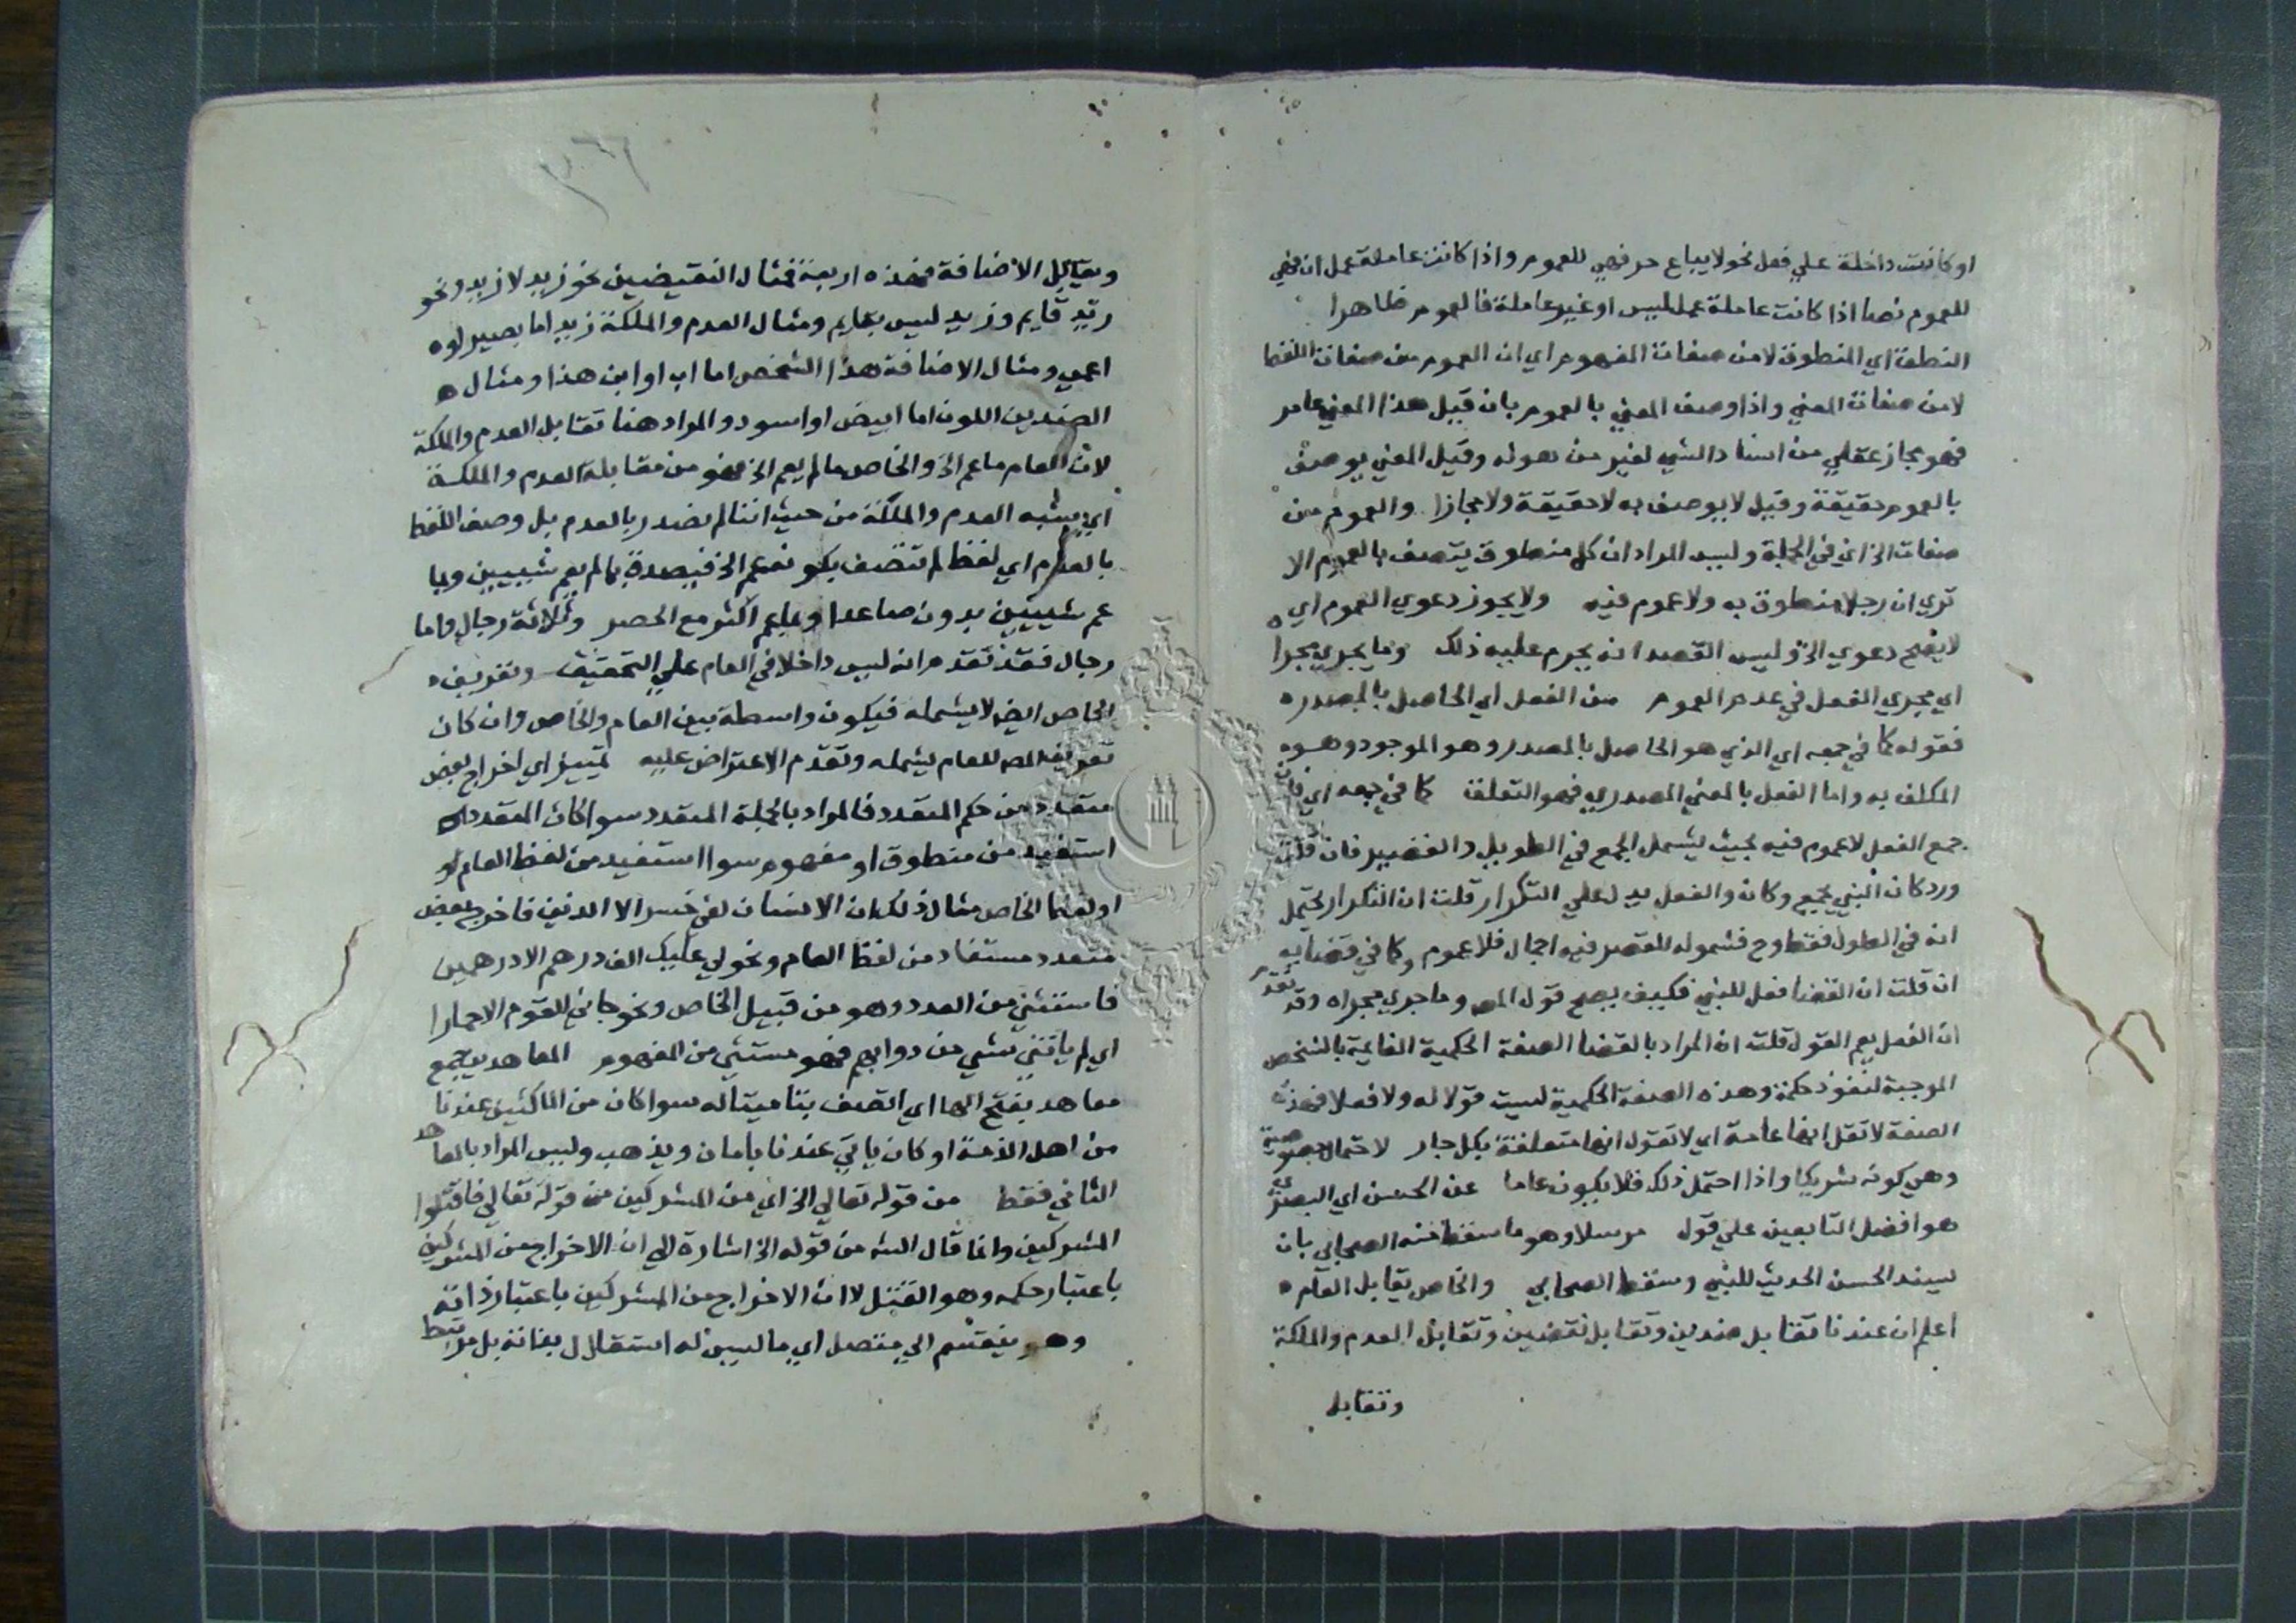 او كانت داخلة علي فعل نحو لا يباع حر فهي للعموم واذا كانت عاملة عمل ان فهي
للعموم نصا اذا كانت عاملة عمل ليس او غير عاملة فالعموم ظاهرا
النطق اي المنطوق لا من صفات المفهوم اي ان العموم من صفات اللفظ
لا من صفات المعني واذا وصف المعني بالعموم بان قيل هذا المعني عام
فهو مجاز عقلي من اسناد الشي لغير من هو له وقيل المعني يوصف
بالعموم حقيقة وقيل لا يوصف به لا حقيقة ولا مجازا والعموم من
صفات الخ اي في الجملة وليس المراد ان كل منطوق يتصف بالعموم الا
تري ان رجلا منطوق به ولا عموم فيه ولا يجوز دعوي العموم اي
لا يصح دعوي الخ وليس القصد انه يحرم عليه ذلك وما يجري مجرا
اي مجري الفعل في عدم العموم من الفعل اي الحاصل بالمصدر
فقوله كما في جمعه اي الذي هو الحاصل بالمصدر وهو الموجود وهو
المكلف به واما الفعل بالمعني المصدري فهو التعلق كما في جمعه اي فان
جمع الفعل لا عموم فيه بحيث يشمل الجمع في الطويل والقصير فان قلت
ورد كان النبي يجمع وكان والفعل يدل علي التكرار قلت ان التكرار يحتمل
انه في الطول فقط وح فشموله للقصر فيه اجمال فلا عموم وكما في قضايه
ان قلت ان القضا فعل للنبي فكيف يصح قول المص وما جري مجراه وقد تقدم
ان الفعل يعم القول قلت ان المراد بالقضا الصفة الحكمية القايمة بالشخص
الموجبة لنفوذ حكمه وهذه الصفة الحكمية ليست قولا له ولا فعلا فهذه
الصفة لا تقل انها عامة اي لا تقول انها متعلقة بكل جار لاحتمال خصوصية
وهي كونه شريكا واذا احتمل ذلك فلا يكون عاما عن الحسن اي البصري
هو افضل التابعين علي قول مرسلا وهو ما سقط منه الصحابي بان
يسند الحسن الحديث للنبي وسقط الصحابي والخاص يقابل العام
اعلم ان عندنا تقابل ضدين وتقابل نقضين وتقابل العدم والملكة
وتقابل
وتقابل الاضافة فهذه اربعة فمثال النقيضين نحو زيد لا زيد ونحو
زيد قايم وزيد ليس بقايم ومثال العدم والملكة زيد اما بصير او
اعمي ومثال الاضافة هذا الشخص اما اب او ابن هذا ومثال
الضدين اللون اما ابيض او اسود والمراد هنا تقابل العدم والملكة
لان العام ما عم الخ والخاص ما لم يعم الخ فهو من مقابلة العدم والملكة
اي يشبه العدم والملكة من حيث اننا لم نصدر بالعدم بل وصف اللفظ
بالعدم اي لفظ لم تتصف بكونه يعم الخ فيصدق بما لم يعم شييين وبما
عم شييين بدون صاعدا وبما عم اكثر مع الحصر وثلاثة رجال واما
رجال فقد تقدم انه ليس داخلا في العام علي التحقيق وتعريف
الخاص ايض لا يشمله فيكون واسطة بين العام والخاص وان كان
تعريف المص للعام يشمله وتقدم الاعتراض عليه تمييز اي اخراج بعض
متعدد من حكم المتعدد فالمراد بالجملة المتعدد سوا كان المتعدد
استفيد من منطوق او مفهوم سوا استفيد من لفظ العام او
او لفظ الخاص مثال ذلك ان الانسان لفي خسر الا الذين فاخرج بعض
متعدد مستفاد من لفظ العام ونحو لي عليك الف درهم الا درهمين
فاستثني من العدد وهو من قبيل الخاص ونحو جاني القوم الا حمارا
اي لم ياتني شي من دوابهم فهو مستثني من المفهوم المعاهدين جمع
معاهد بفتح الها اي اتصف بتاميننا له سوا كان من الماكثين عندنا
من اهل الذمة او كان ياتي عندنا بامان ويذهب وليس المراد بالمعاهد
الثاني فقط من قوله تعالي الخ اي من المشركين من قوله تعالي فاقتلوا
المشركين وانما قال الش من قوله الخ اشارة الي ان الاخراج من المشركين
باعتبار حكمه وهو القتل لا ان الاخراج من المشركين باعتبار ذاته
وهو ينقسم الي متصل اي ما ليس له استقلال بذاته بل مرتبط